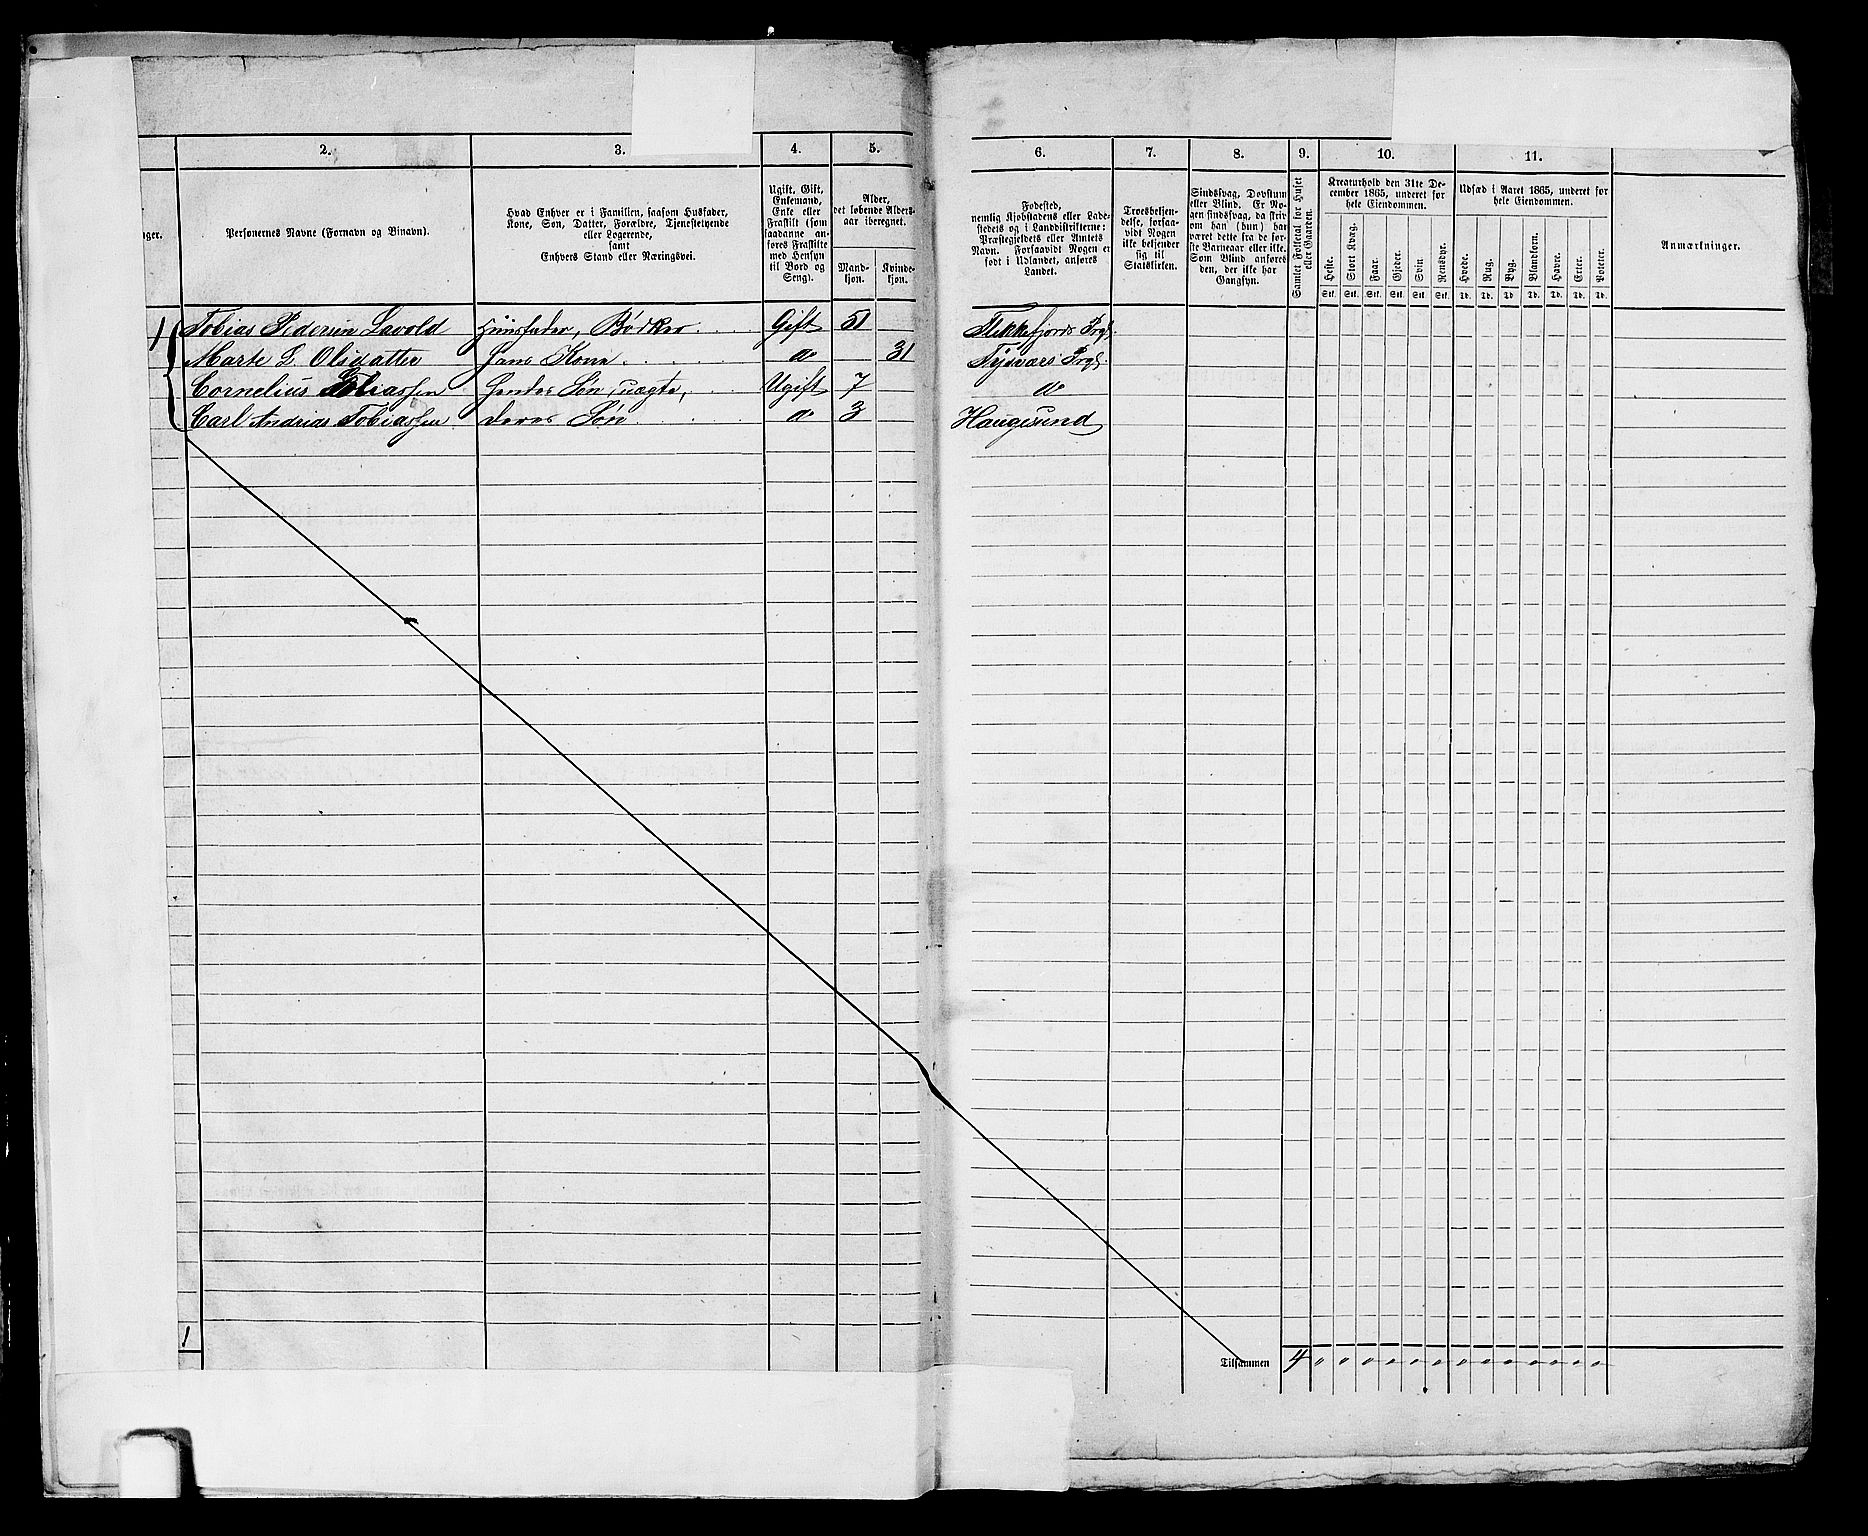 2.
3.
4.
5.
6.
7.
8.
9.
10.
11.
nger.
Personernes Navne (Fornavn og Binavn).
Hvad Enhver er i Familien, saasom Husfader,
Kone, Søn, Datter, Forældre, Tjenestetyende
eller Logerende,
samt
Enhvers Stand eller Næringsvei.
Ugift, Gift,
Enkemand,
Enke eller
Fraskilt (som
saadanne an-
føres Fraskilte
med Hensyn
til Bord og
Seng).
Alder,
det løbende Alders-
aar iberegnet.
Mand-
kjøn.
Kvinde-
kjøn.
Fødested,
nemlig Kjøbstadens eller Lade-
stedets og i Landdistrikterne:
Præstegjeldets eller Amtets
Navn. Forsaavidt Nogen er
født i Udlandet, anføres
Landet.
Troesbekjen-
delse, forsaa-
vidt Nogen
ikke bekjender
sig til
Statskirken.
Sindssvag, Døvstum
eller Blind. Er No-
gen sindssvag, da skriv
om han (hun) har
været dette fra de før-
ste Barneaar eller ikke.
Som Blind anføres
den, der ikke har
Gangsyn.
Samlet Folketal for Huset
eller Gaarden.
Kreaturhold den 31te De-
cember 1865, underet for
hele Eiendommen.
Heste. Stort Kvæg. Faar. Gjeder. Svin. Rensdyr.
Stk. Stk. Stk. Stk. Stk. Stk.
Udsæd i Aaret 1865, underet for
hele Eiendommen.
Hvede. Rug. Byg. Blandkorn. Havre. Erter. Poteter.
Td. Td. Td. Td. Td. Td. Td.
Anmærkninger.
1 Tobias Pedersen Lavold Huusfader, Bødker Gift 51 Flekkefjords Prgj.
Marte L. Olsdatter hans Kone do 31 Tysværs Prgj.
Cornelius Tobiassen hendes Søn, uægte, Ugift 7 do
Carl Andreas Tobiassen deres Søn do 3 Haugesund
1
Tilsammen 4 " " " " " " " " " " " " "